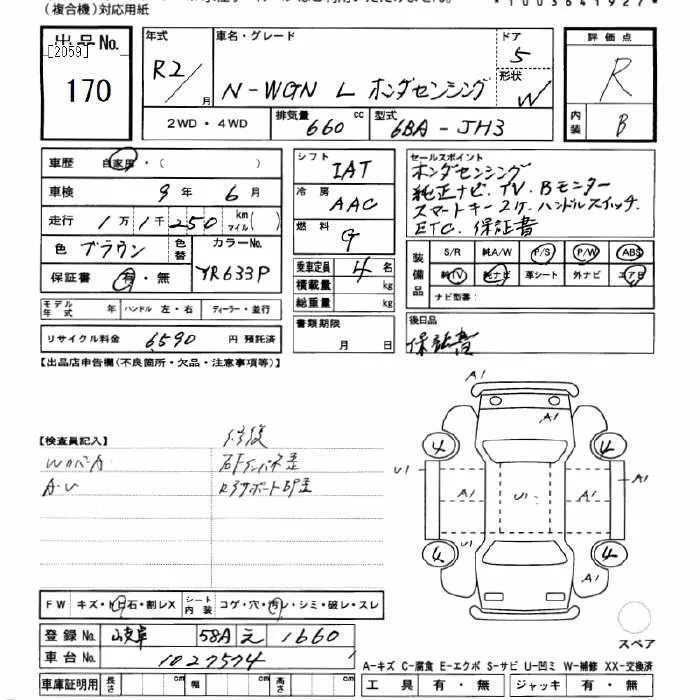 (複合機)対応用紙
*1003641927*
出品No.
[2059]
170
年式 R2/ 月
車名・グレード N-WGN L ホンダセンシング
ドア 5
形状 W
評価点 R
内装 B
2WD・4WD
排気量 660 cc
型式 6BA-JH3
車歴 自家用・( )
車検 9年 6月
走行 1万 1千 250 km マイル( )
色 ブラウン 色替 カラーNo. YR633P
保証書 有・無
モデル年式 年 ハンドル 左・右 ディーラー・並行
リサイクル料金 6590 円 預託済
シフト IAT
冷房 AAC
燃料 G
乗車定員 4 名
積載量 kg
総重量 kg
書類期限 月 日
セールスポイント
ホンダセンシング
純正ナビ.TV.Bモニター
スマートキー2ケ.ハンドルスイッチ.
ETC.保証書
装備品 S/R 純A/W P/S P/W ABS
純TV 純ナビ 革シート 外ナビ エアB
ナビ型番:
後日品
保証書
【出品店申告欄(不良箇所・欠品・注意事項等)】
【検査員記入】
修復
A・U
A1
A1
4 4
U1 A1 U1 A1 A1
U1
4 4
A1
FW キズ・トビ石・割レX シート内装 コゲ・穴・汚レ・シミ・破レ・スレ
登録No. 岐阜 58A え 1660
車台No. 1027574
車庫証明用 長さ cm 幅 cm 高さ cm
スペア
A-キズ C-腐食 E-エクボ S-サビ U-凹ミ W-補修 XX-交換済
工具 有・無 ジャッキ 有・無